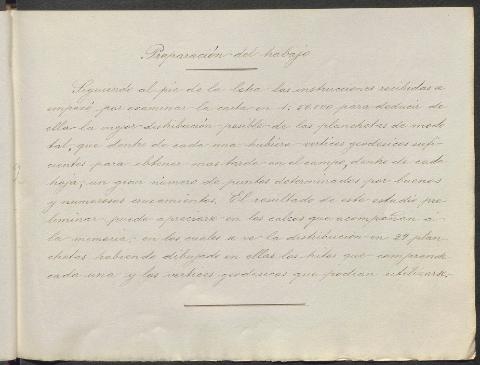 Preparación del trabajo
Siguiendo al pie de la letra las instrucciones recibidas se
empezó por examinar la carta en 1: 50.000 para deducir de
ellas la mejor distribución posible de las planchetas de modo
tal, que dentro de cada una hubiera vertices geodesicos sufi-
cientes para obtener mas tarde en el campo, dentro de cada
hoja, un gran número de puntos determinados por buenos
y numerosos cruzamientos. El resultado de este estudio pre-
liminar puede apreciarse en los calcos que acompañan á
la memoria, en los cuales se ve la distribución en 29 plan-
chetas habiendo dibujado en ellas los hitos que comprende
cada una y los vertices geodesicos que podian utilizarse.-